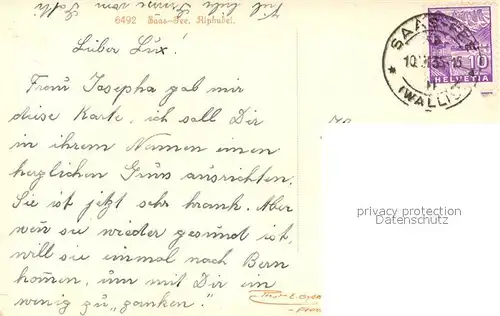 6492 Saas-Fee. Alphubel.
Lieber Lux!
Frau Josepha gab mir
diese Karte, ich soll Dir
in ihrem Namen einen
herzlichen Gruss ausrichten.
Sie ist jetzt sehr krank. Aber
wen sie wieder gesund ist,
will sie einmal nach Bern
kommen, um mit Dir ein
wenig zu "zanken".
SAAS-FEE
(WALLIS)
10
HELVETIA
privacy protection
Datenschutz